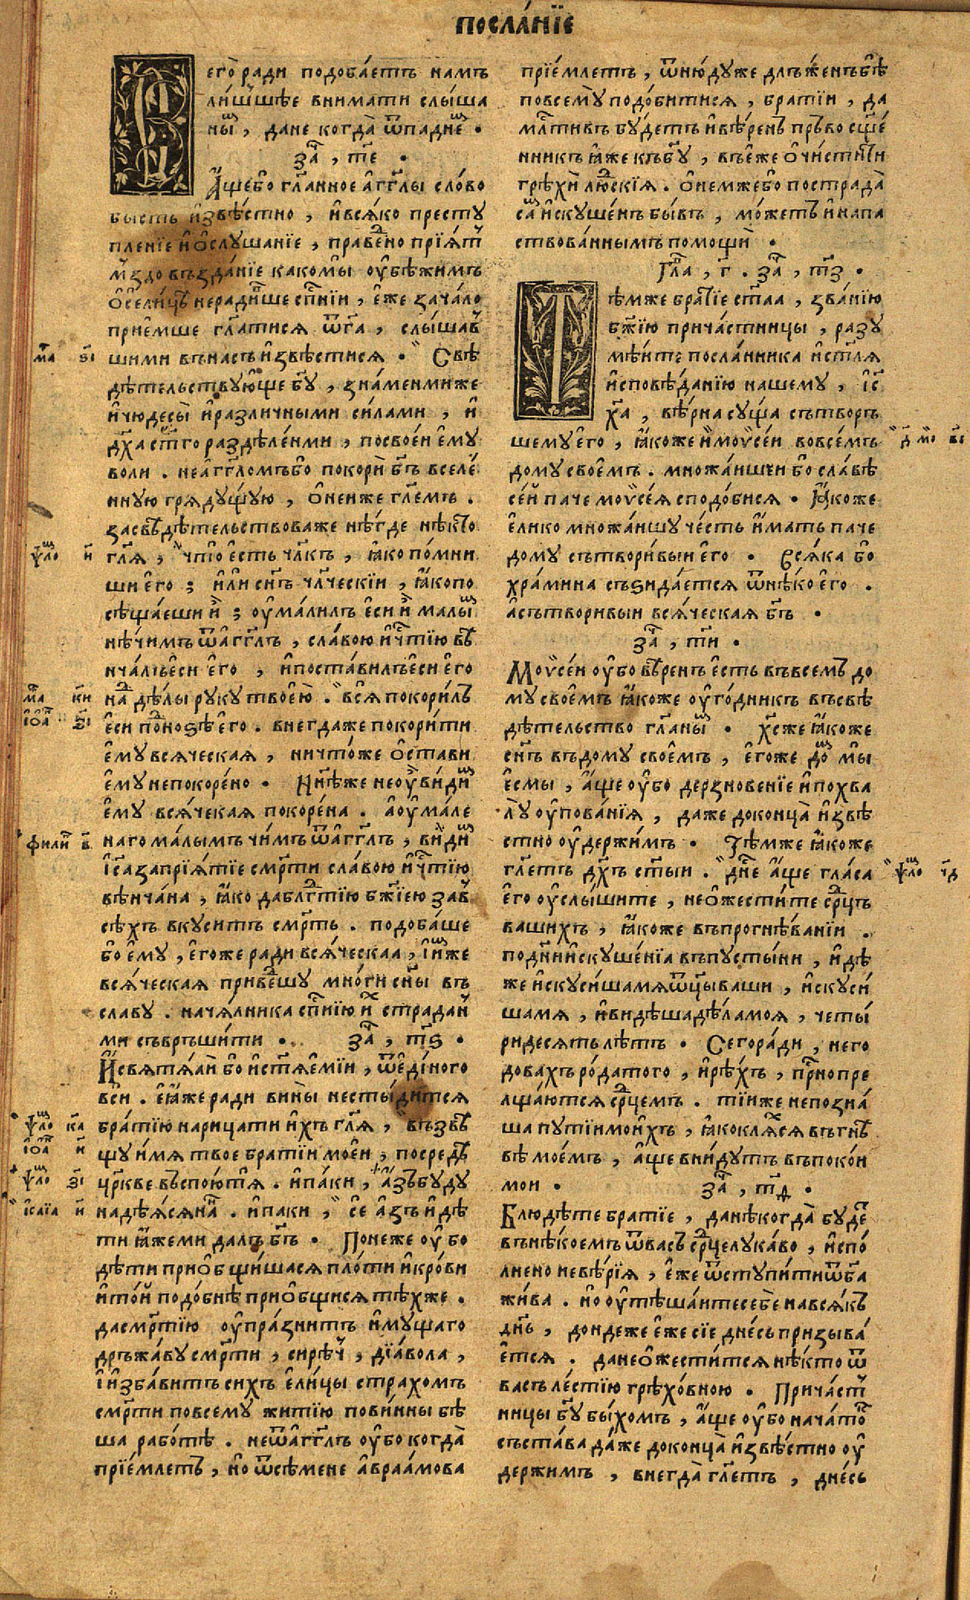 посла́нїе
Сего̀ ради подоба́етъ намъ
ли́шшѣе внимати слы́ша
ны̑м, дане когда̀ ѿпаднє .
за҃ , т҃е .
А҆́ще бо гл҃анное а҆́гг҃лы сло́во
бысть и҆звѣ́стно , и҆ вся́ко престу
пленїе и҆ ѻ҆слушанїе , пра́ведно прїя́тъ
м̑здо въздая́нїе како мы̀ ѹ҆бѣжимъ
ѻ҆ сели́цѣ неради́вше сп҃нїи , е҆́же зача́ло
прие́мше гл҃атися ѿ г҃а , слы́шав
шими въ насъ и҆звѣстися . Свѣ
дѣтельствую́ще бг҃у , зна́меньми же
и҆ чюдесы̀ и҆ разли́чными си́лами , и҆
дх҃а ст҃го раздѣле́нми , по свое́и е҆му̀
воли . не а҆гг҃ломъ бо покорѝ бг҃ъ вселе́
нную гряду́щую , ѻ҆ неиже гл҃емъ .
засвѣдѣтельствова же нѣ́где нѣ́кто
гл҃я , что̀ е҆сть чл҃къ , ꙗ҆́ко по́мни
ши е҆го̀ ; и҆лѝ сн҃ъ чл҃ческїи , ꙗ҆́ко по
сѣща́еши и҆̀ ; ѹ҆ма́лилъ е҆си и҆̀ ма́лым
нѣ́чимъ ѿ а҆́гг҃лъ , сла́вою и҆ че́стїю вѣ
нча́лъ е҆си е҆го̀ , и҆ поста́вилъ е҆си е҆го̀
над дѣ́лы руку̀ твое́ю . вся̀ покори́лъ
е҆си под но́зѣ е҆го̀ . внегда же покори́ти
е҆му̀ вся́ческая , ничто́же ѻ҆ста́ви
е҆му̀ непокоре́но . Ны́нѣ же не ѹ҆̀ ви́дим
е҆му̀ вся́ческая покоре́на . а҆ ѹ҆ма́ле
наго ма́лымъ чи́мъ ѿ а҆́гг҃лъ , ви́дим
і҆с҃а за прїя́тїе сме́рти сла́вою и҆ че́стїю
вѣнча́на , ꙗ҆́ко да блг҃тїю бж҃їею за в
сѣ́хъ вку́ситъ сме́рть . подоба́ше
бо е҆му̀ , е҆го́же ради вся́ческаа , и҆ и҆́мже
вся́ческая приве́дшу мно́ги сн҃ы въ
сла́ву . нача́лника сп҃нїю и҆х страда́н
ми съврьши́ти . за҃ , т҃ѕ .
И҆ святя́аи бо и҆ ст҃я́емїи , ѿ е҆ди́ного
всѝ . е҆ꙗ҆́же ради вины̀ не сты́дится
бра́тїю нарица́ти и҆́хъ гл҃я , възвѣ
щу̀ и҆́мя твоѐ бра́тїи мое́и , посредѣ
цр҃кве въспою́ тя . и҆ па́ки , а҆́зъ бу́ду
надѣ́яся на́нь . и҆ па́ки , сѐ а҆́зъ и҆ дѣ
ти ꙗ҆́же ми да́лъ бг҃ъ . Поне́же ѹ҆́бо
дѣ́ти приѻбщи́шася пло́ти и҆ кро́ви
и҆ то́й подо́бнѣ приѻбщися тѣ́хже .
да сме́ртїю ѹ҆пра́знитъ и҆му́щаго
дръжа́ву сме́рти , си́рѣч , дїа́вола ,
і҆ и҆зба́витъ си́хъ е҆ли́цы стра́хомъ
сме́рти по всему̀ житїю̀ пови́нны бѣ
ша рабо́тѣ . не ѿ а҆́гг҃лъ ѹ҆́бо когда̀
прїе́млетъ , но̀ ѿ сѣ́мене а҆враа́мова
прїе́млетъ , ѿню́ду же длъ́женъ бѣ̀
по всему̀ подо́битися , бра́тїи , да
млⷭ҇тивъ бу́детъ и҆ вѣ́ренъ пръ́восще
нникъ ꙗ҆́же къ бг҃у , въ е҆же ѻ҆чи́стити
грѣхѝ людскїя . ѻ҆ не́мже бо пострада̀
са́м и҆скуше́нъ бы́въ , мо́жетъ и҆ напа
ствова́ннымъ помощѝ .
Гла҃ , г҃ . за҃ , т҃з .
Тѣ́мже бра́тїе ст҃аа , зва́нїю
бж҃їю прича́стницы , разу
мѣ́ите посла́нника и҆ ст҃ля
и҆сповѣ́данїю на́шему , і҆с҃
х҃а , вѣ́рна су́ща сътворь
шему е҆го̀ , ꙗ҆́коже и҆ моѵсе́и во все́мъ
дому̀ свое́мъ . мно́жаишеи бо сла́вѣ
се́й па́че моѵсе́я сподо́бися . Ꙗ҆́коже
е҆ли́ко мно́жаишу че́сть и҆́мать па́че
до́му сътвори́выи е҆го̀ . Вся́ка бо
хра́мина съзида́ется ѿ нѣ́кого .
а҆ сътвори́выи вся́ческая бг҃ъ .
за҃ , т҃и .
Моѵсе́и ѹ҆́бо вѣ́ренъ е҆сть въ все́мъ до
му̀ свое́мъ ꙗ҆́коже ѹ҆го́дникъ въ свѣ
дѣ́тельство гл҃анымъ . Хс҃ же ꙗ҆́коже
сн҃ъ въ дому̀ свое́мъ , е҆го́же дом мы̀
е҆смы̀ , а҆́ще ѹ҆́бо дерзнове́нїе и҆ похва
лу̀ ѹ҆пова́нїя , да́же до конца̀ и҆звѣ́
стно ѹ҆держи́мъ . Тѣ́мже ꙗ҆́коже
гл҃етъ дх҃ъ ст҃ыи . дне́сь а҆́ще гла́са
е҆го̀ ѹ҆слы́шите , не ѻ҆жести́те сердцъ
ва́шихъ , ꙗ҆́коже въ прогнѣ́ванїи .
по днѝ и҆скуше́нїа въ пусты́ни , и҆дѣ́
же и҆скуси́ша мя ѿц҃ы ва́ши , и҆скуси́
ша мя , и҆ ви́дѣша дѣла̀ моя̀ , четы́
ридесять лѣ́тъ . Сего̀ ра́ди , него
дова́хъ ро́да того̀ , и҆ рѣ́хъ , при́сно пре
лща́ются се́рдцемъ . ті́и же не позна́
ша путїи мои́хъ , ꙗ҆́ко кля́хся въ гнѣ
вѣ мое́мъ , а҆́ще вни́дутъ въ поко́и
мои . за҃ , т҃д .
Блюдѣ́те бра́тїе , да не́когда бу́дет
въ нѣ́коемъ ѿ ва́съ се́рдце лука́во , и҆спо́
лнено невѣ́рїя , е҆́же ѿступи́ти ѿ бг҃а
жи́ва . но̀ ѹ҆тѣша́ите себѐ на вся́къ
дн҃ь , до́ндеже е҆́же сїѐ дне́сь призыва́
е҆тся . да не ѻ҆жести́тся нѣ́кто ѿ
ва́съ ле́стїю грѣхо́вною . Прича́ст
ницы бг҃у бы́хомъ , а҆́ще ѹ҆́бо нача́ток
съста́ва да́же до конца̀ и҆звѣ́стно ѹ҆
держи́мъ , внегда̀ гл҃етъ , дне́сь